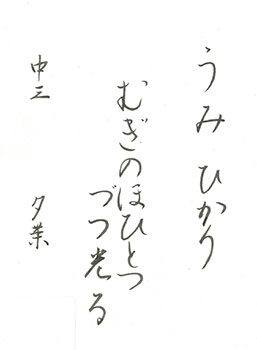 うみ ひかり
むぎのほひとつ
づつ光る
中三 夕葉